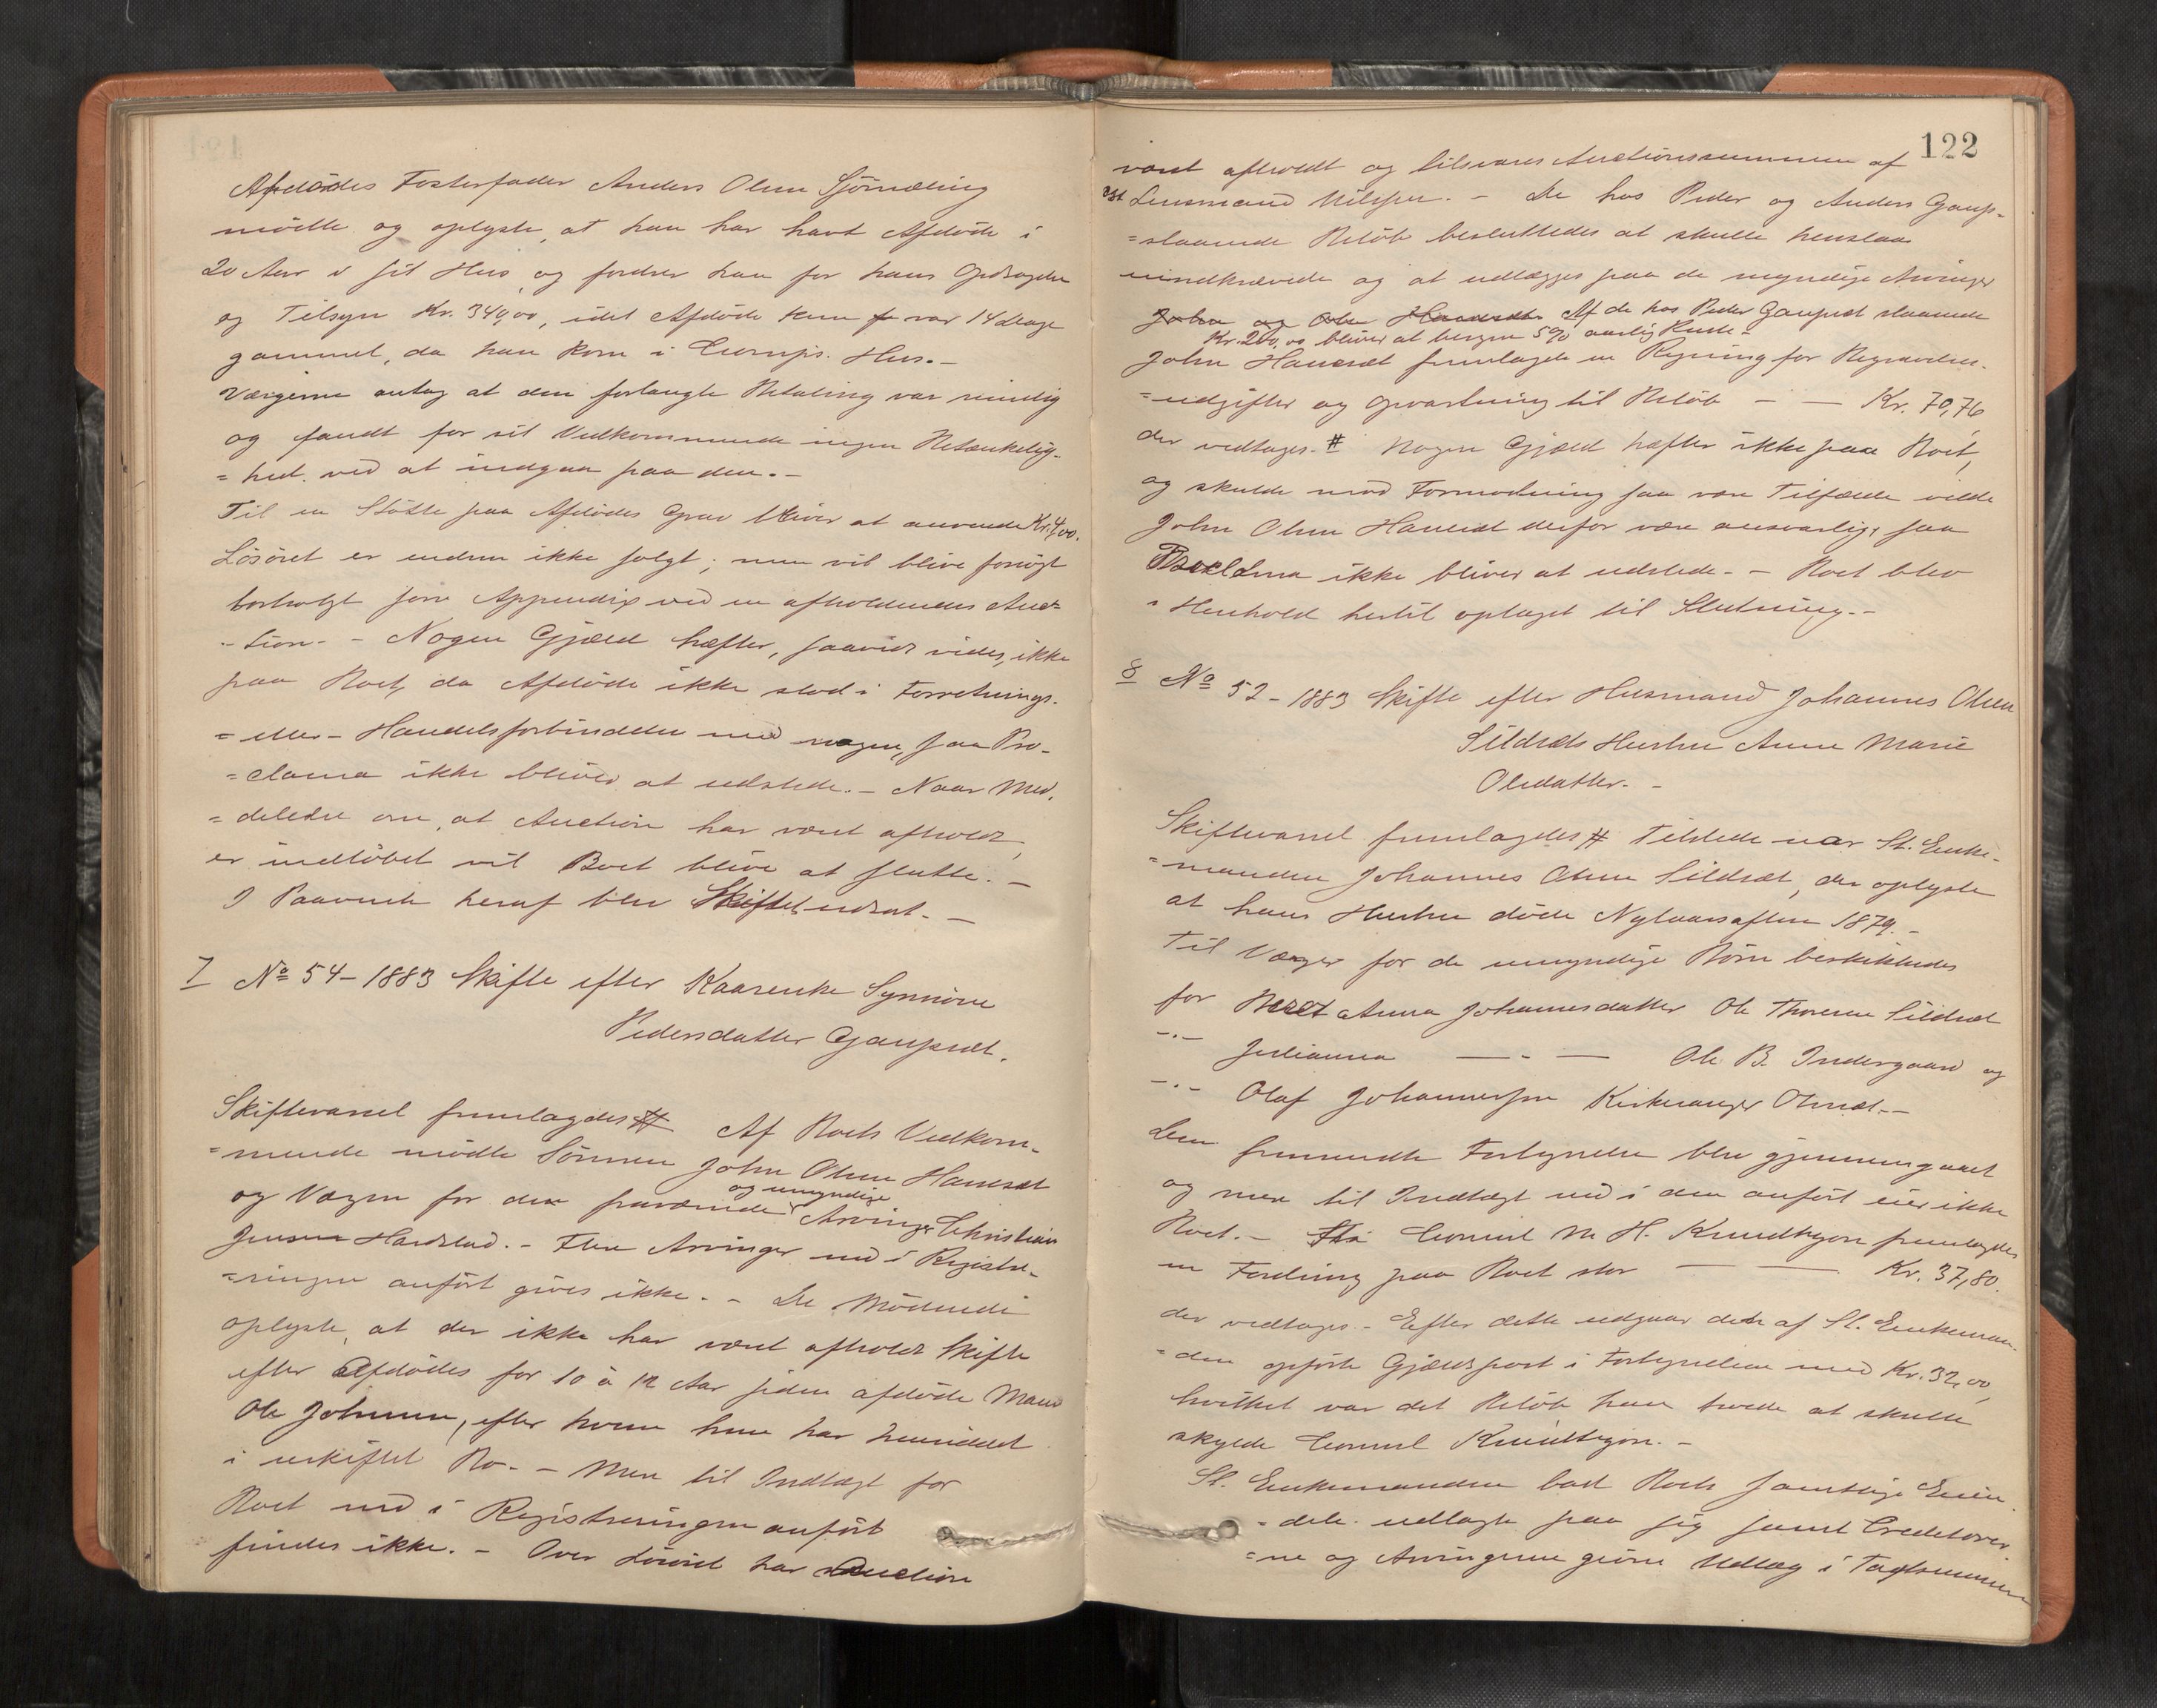 Afdødes Fosterfader Anders Olsen
mødte og oplyste, at han har havt Afdøde i
20 Aar i sit Hus, og fordrer han for hans Opdragelse
og Tilsyn Kr. 340,00, idet Afdøde kun var 14 Dage
gammel, da han kom i Comps. Hus.-
Værgerne antog at den forlangte Betaling var rimelig
og fandt for sit Vedkommende ingen Betænkelig-
=hed ved at indgaa paa den.-
Til en Støtte paa Afdødes Grav bliver at anvende Kr. 4,00.
Løsøret er endnu ikke solgt; men vil blive forsøgt
bortsolgt som Appendix ved en afholdendes Auc-
-tion.- Nogen Gjæld hæfter, saavidt vides, ikke
paa Boet, da Afdøde ikke stod i Forretnings-
=eller-Handelsforbindelse med nogen, saa Pro-
=clama ikke bliver at udstede.- Naar Med-
=delelse om, at Auction har været afholdt,
er indløbet vil Boet blive at slutte.-
I Paavente heraf blev Skiftet udsat.-
7 No 54-1883 Skifte efter Kaarenke Synnøve
Pedersdatter Gaupset.
Skiftevarsel fremlagdes # Af Boets Vedkom-
=mende mødte Sønnen John Olsen Hanesæt
og umyndige
og Værgen for den fraværende Arving Christian
Jensen Hardstad.- Flere Arvinger end i Registre-
=ringen anført gives ikke.- De Mødende
oplyste, at der ikke har været afholdt Skifte
efter Afdødes for 10 à 12 Aar siden afdøde Mand
Ole Johnsen, efter hvem hun har hensiddet
i uskiftet Bo.- Mere til Indtægt for
Boet end i Registreringen anført
findes ikke.- Over Løsøret har Auction
122
været afholdt og tilsvares Auctionssummen af
Lensmand Nilssen.- De hos Peder og Anders Gaup-
set
=staaende Beløb besluttedes at skulle henstaa
uindkrævede og at udlægges paa de myndige Arvinger
John og Ole Hanesæt Af de hos Peder Gaupset staaende
Kr. 200,00 bliver at beregne 5% aarlig Rente.-
John Hanesæt fremlagde en Regning for Begravelses-
=udgifter og Opvartning til Beløb - - Kr. 70,76
der vedtages.# Nogen Gjæld hæfter ikke paa Boet,
og skulde mod Formodning saa være Tilfælde vilde
John Olsen Hanesæt derfor være ansvarlig, saa
Proclama ikke bliver at udstede.- Boet blev
i Henhold hertil optaget til Slutning.-
8 No 52-1883 Skifte efter Husmand Johannes Olsen
Sildsæts Hustru Anne Marie
Olsdatter.-
Skiftevarsel fremlagdes # Tilstede var St. Enke-
=manden Johannes Olsen Sildsæt, der oplyste
at hans Hustru døde Nytaarsaften 1879.-
Til Værger for de umyndige Børn beskikkedes
for Beret Anna Johannesdatter Ole Thoresen Sildsæt
-"- Julianna -"- Ole B. Indergaard og
-"- Olaf Johannessen Olsæt.-
Den fremsendte Fortegnelse blev gjennemgaaet
og mere til Indtægt end i den anført eier ikke
Boet.- Fra Consul N. H. Knudtzon fremlagdes
en Fordring paa Boet stor - - Kr. 37,80.
der vedtages.- Efter dette udgaar den af St. Enkeman-
=den opførte Gjældspost i Fortegnelsen med Kr. 32,00,
hvilket var det Beløb han troede at skulle
skylde Consul Knudtzon.-
St. Enkemanden bad Boets samtlige Eien-
=dele udlagte paa sig samt Creditorer-
=ne og Arvingerne givne Udlæg i Taxtsummen